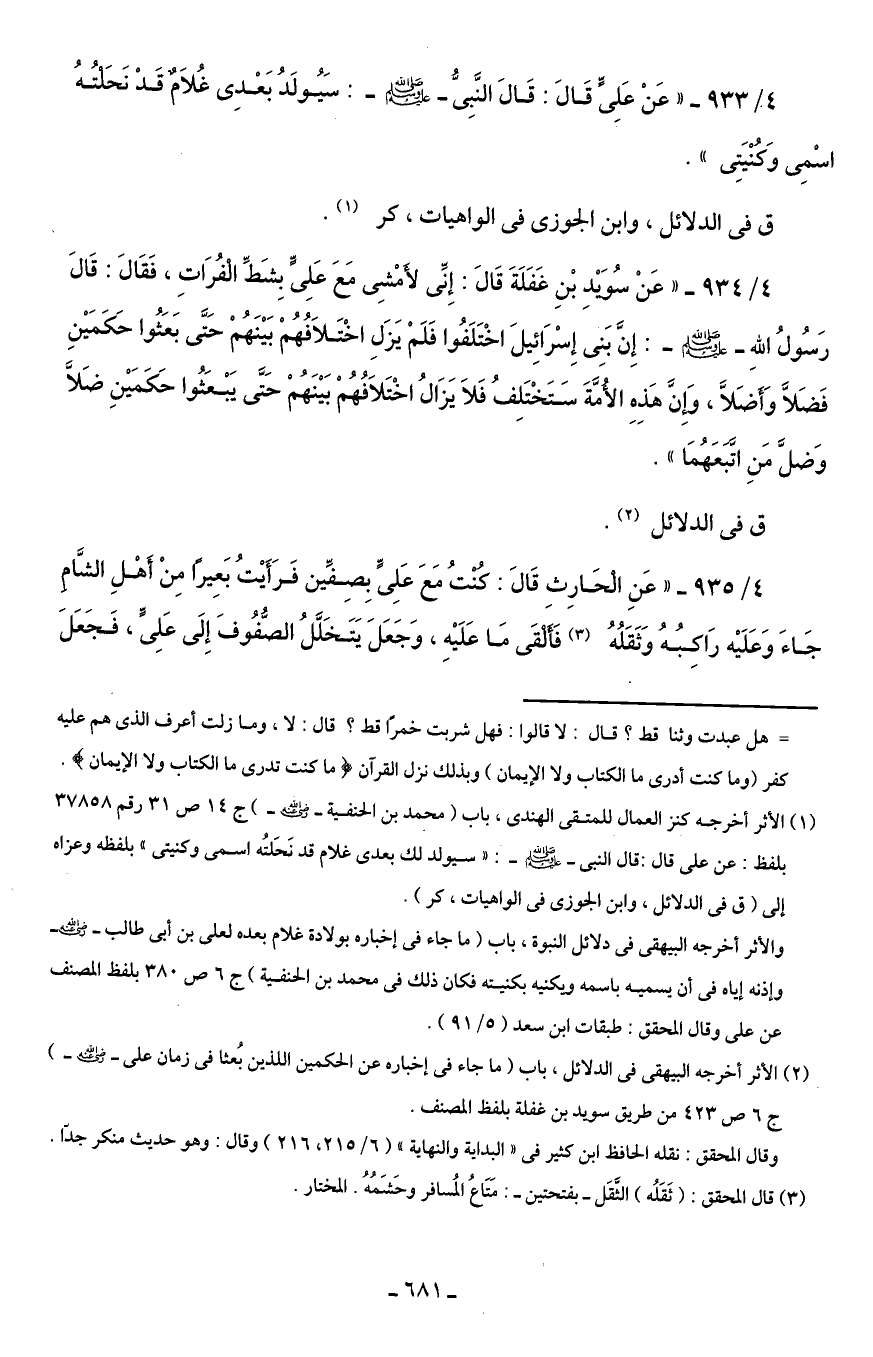 ٤/ ٩٣٣ ـ « عَنْ عَلِىٍّ قَـالَ : قَـالَ النَّبِىُّ ـ ﷺ ـ : سَيُـولَدُ بَعْـدِى غُلَامٌ قَـدْ نَحَلْتُـهُ
اسْمِى وَكُنْيَتِى » .
ق فى الدلائل ، وابن الجوزى فى الواهيات ، كر (١) .
٤/ ٩٣٤ ـ « عَنْ سُوَيْدِ بْنِ غَفَلَةَ قَالَ : إِنِّى لأَمْشِى مَعَ عَلِىٍّ بِشَطِّ الْفُرَاتِ ، فَقَالَ : قَالَ
رَسُولُ اللهِ ـ ﷺ ـ : إِنَّ بَنِى إِسْرَائِيلَ اخْتَلَفُوا فَلَمْ يَزَلِ اخْتِـلَافُهُمْ بَيْنَهُمْ حَتَّى بَعَثُوا حَكَمَيْنِ
فَضَلاَّ وَأَضَلاَّ ، وَإِنَّ هَذِهِ الأُمَّةَ سَتَخْتَلِفُ فَلاَ يَزَالُ اخْتِلَافُهُمْ بَيْنَهُمْ حَتَّى يَبْعَثُوا حَكَمَيْنِ ضَلاَّ
وَضَلَّ مَنِ اتَّبَعَهُمَا » .
ق فى الدلائل (٢) .
٤/ ٩٣٥ ـ « عَنِ الْحَارِثِ قَالَ : كُنْتُ مَعَ عَلِىٍّ بِصِـفِّين فَـرَأَيْتُ بَعِيرًا مِنْ أَهْـلِ الشَّامِ
جَـاءَ وَعَلَيْهِ رَاكِـبُـهُ وَثَقَلُهُ (٣) فَأَلْقَى مَـا عَلَيْهِ ، وَجَعَلَ يَتَـخَلَّلُ الصُّفُوفَ إِلَى عَلِىٍّ ، فَـجَعَلَ
= هل عبدت وثنا قط ؟ قـال : لا قالوا : فهل شربت خمرًا قط ؟ قال : لا ، ومـا زلت أعرف الذى هم عليه
كفر (وما كنت أدرى ما الكتاب ولا الإيمان ) وبذلك نزل القرآن ﴿ ما كنت تدرى ما الكتاب ولا الإيمان ﴾ .
(١) الأثر أخرجـه كنز العمال للمتـقى الهندى ، باب ( محمد بن الحنفية ـ رضي الله عنه ـ ) ج ١٤ ص ٣١ رقم ٣٧٨٥٨
بلفظ : عن على قال :قال النبى ـ ﷺ ـ : « سـيولد لك بعدى غلام قد نَحَلتُه اسـمى وكنيتى » بلفظه وعزاه
إلى ( ق فى الدلائل ، وابن الجوزى فى الواهيات ، كر ) .
والأثر أخرجه البيهقى فى دلائل النبوة ، باب ( ما جاء فى إخباره بولادة غلام بعده لعلى بن أبى طالب ـ رضي الله عنه ـ
وإذنه إياه فى أن يسميـه باسمه ويكنيه بكنيـته فكان ذلك فى محمد بن الحنفـية ) ج ٦ ص ٣٨٠ بلفظ المصنف
عن على وقال المحقق : طبقات ابن سعد ( ٥/ ٩١ ) .
(٢) الأثر أخرجه البيهقى فى الدلائل ، باب ( ما جاء فى إخباره عن الحكمين اللذين بُعثا فى زمان على ـ رضي الله عنه ـ )
ج ٦ ص ٤٢٣ من طريق سويد بن غفلة بلفظ المصنف .
وقال المحقق : نقله الحافظ ابن كثير فى « البداية والنهاية » ( ٦/ ٢١٥، ٢١٦ ) وقال : وهو حديث منكر جدّا .
(٣) قال المحقق : ( ثَقَلُه ) الثَّقَل ـ بفتحتين ـ : مَتَاعُ المُسافر وحَشَمُهُ . المختار .
ـ ٦٨١ ـ